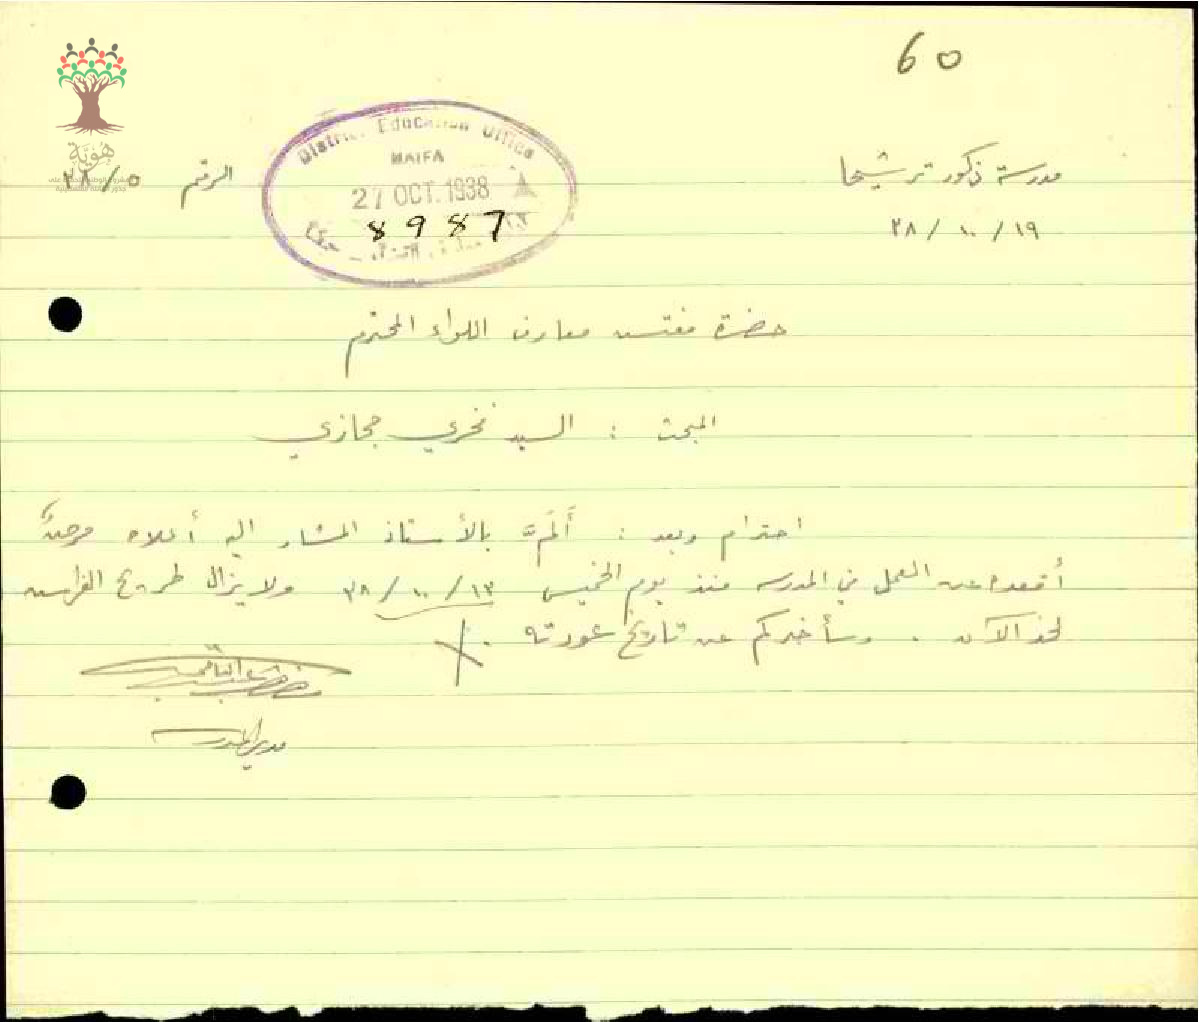 60
مدرسة ذكور ترشيحا
١٩ / ١٠ / ٣٨
الرقم ٥ / ٣٨
هوية
District Education Office
HAIFA
27 OCT. 1938
8987
حضرة مفتش معارف اللواء المحترم
المبحث : السيد فخري حجازي
احترام وبعد : أَلمَّ بالأستاذ المشار اليه أعلاه مرضٌ
أقعده عن العمل في المدرسه منذ يوم الخميس ١٣ / ١٠ / ٣٨ ولا يزال طريح الفراش
لحد الآن . وسأخبركم عن تاريخ عودته .
مدير المدرسة